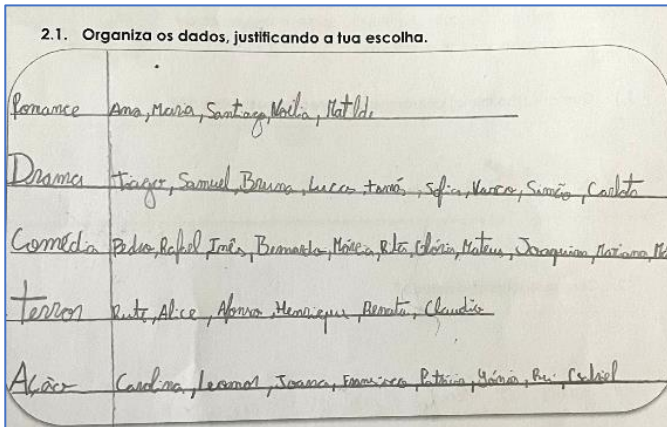 2.1. Organiza os dados, justificando a tua escolha.
Romance Ana, Maria, Santiago, Noélia, Matilde
Drama Tiago, Samuel, Bruna, Lucas, tomás, Sofia, Vasco, Simão, Carlota
Comédia Pedro, Rafael, Inês, Bernardo, Márcia, Rita, Glória, Mateus, Joaquim, Mariana,
Terror Rute, Alice, Afonso, Henrique, Renata, Claudio
Ação Carolina, Leonor, Joana, Francisca, Patrícia, Rui, Gabriel